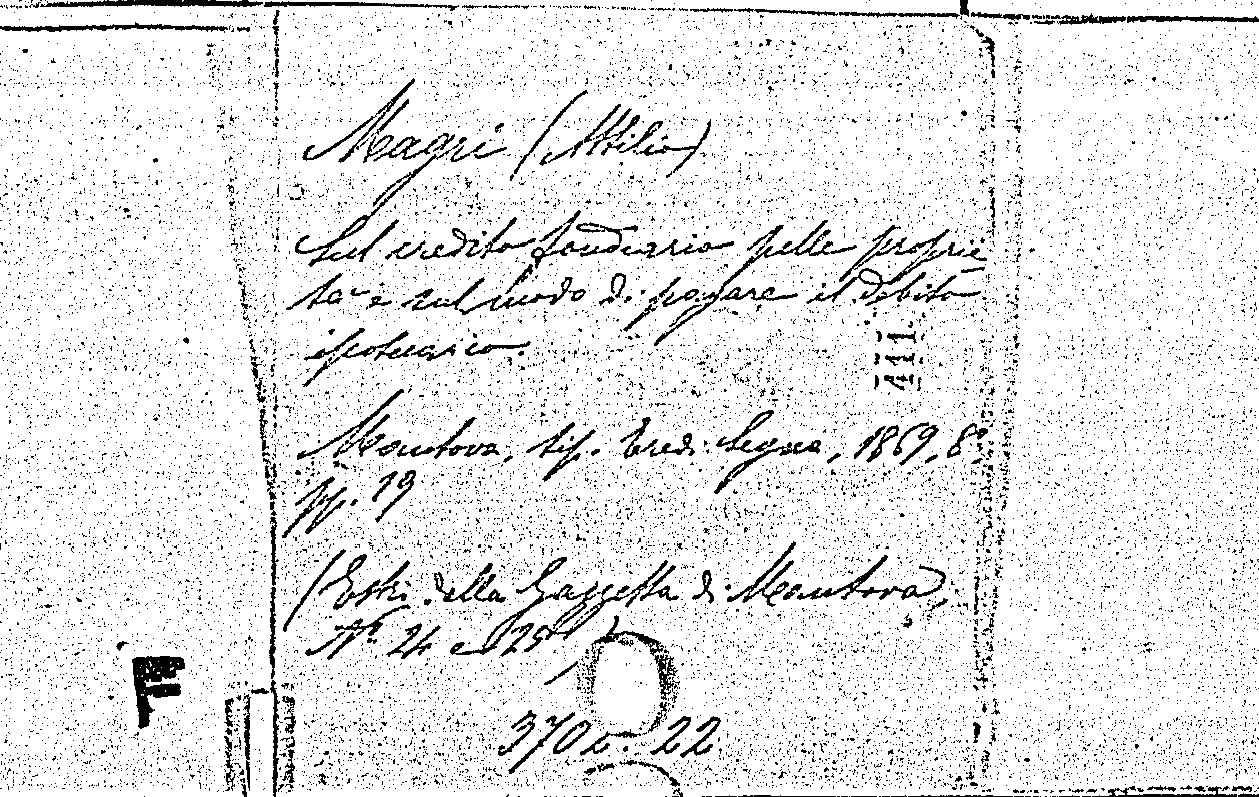 Magri (Attilio)
Sul credito fondiario pelle proprie
ta e sul modo di pagare il debito
ipotecario.
111
Mantova, tip. Eredi Segna, 1869, 8º
pp. 19
(Estr. della Gazzetta di Mantova,
Nⁱ 24 e 25)
F
370 . 22